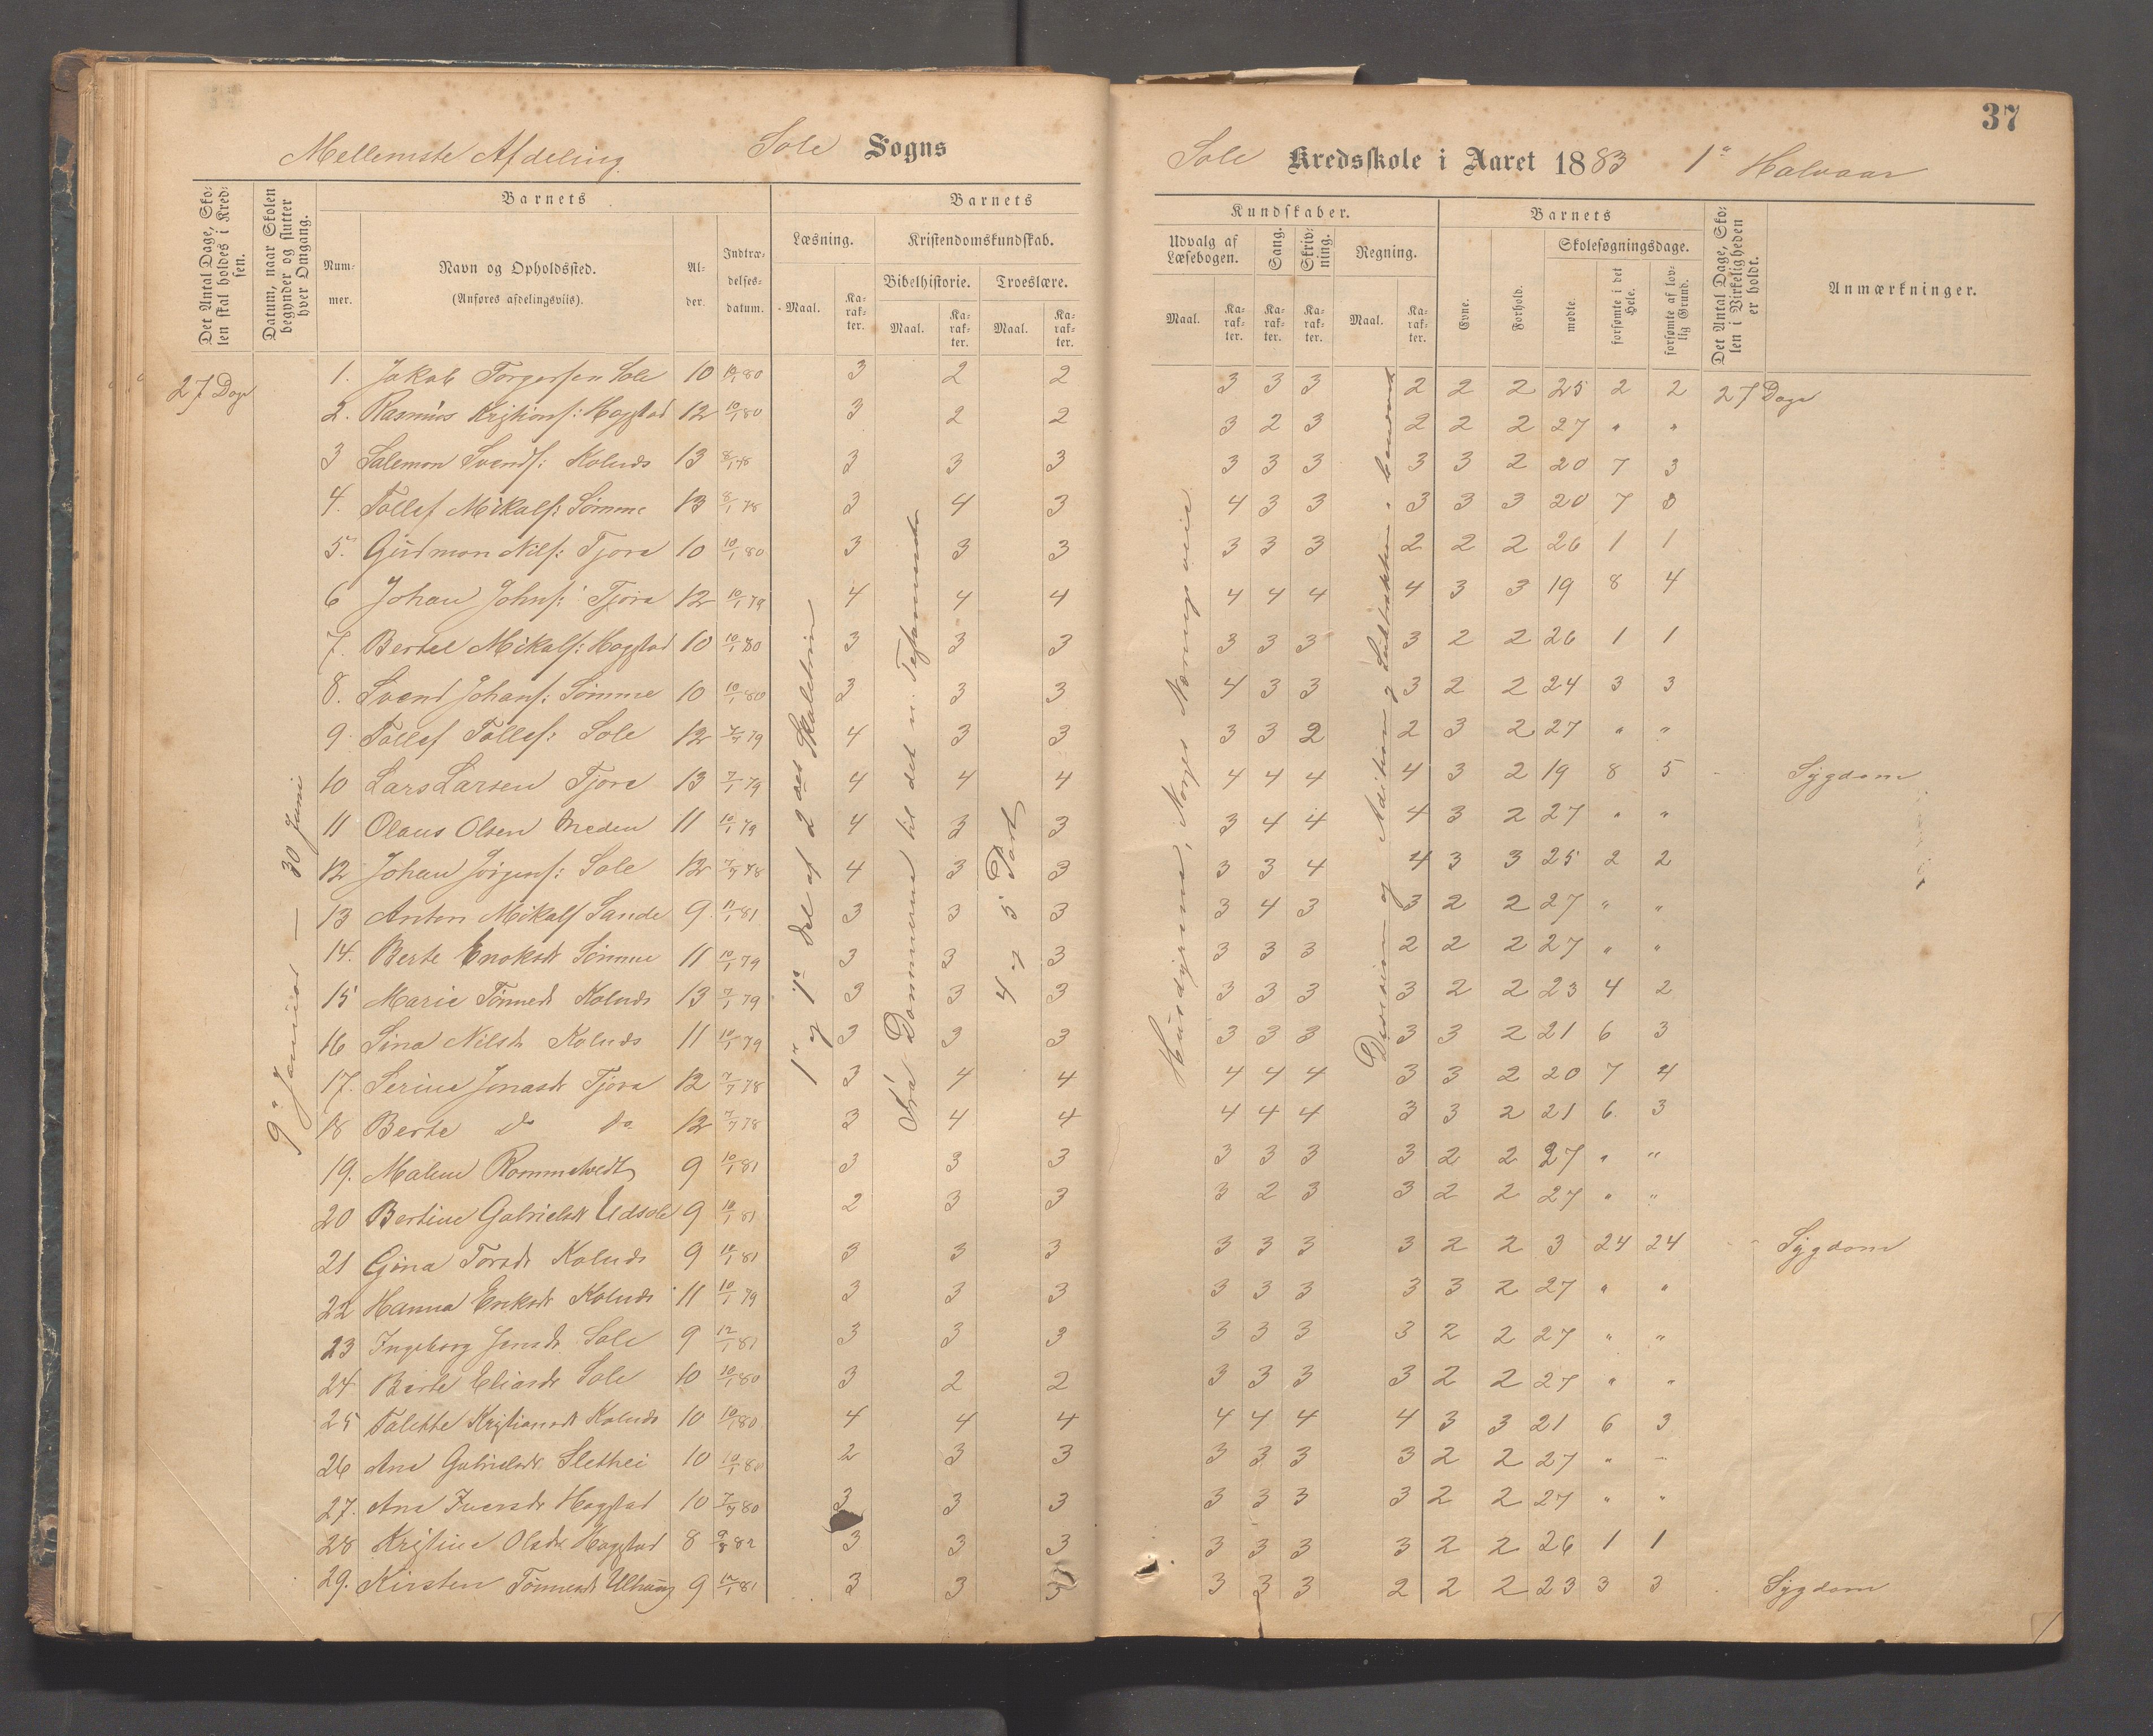 37
Mellemste Afdeling. Sole Sogns
Sole Kredsskole i Aaret 1883 1ste Halvaar
Det Antal Dage, Skolen skal holdes i Kredsen.
Datum, naar Skolen begynder og slutter hver Omgang.
Barnets
Nummer.
Navn og Opholdssted.
(Anføres afdelingsviis).
Alder.
Indtrædelsesdatum.
Barnets
Læsning.
Maal.
Karakter.
Kristendomskundskab.
Bibelhistorie.
Maal.
Karakter.
Troeslære.
Maal.
Karakter.
Kundskaber.
Udvalg af Læsebogen.
Maal.
Karakter.
Sang.
Karakter.
Skrivning.
Karakter.
Regning.
Maal.
Karakter.
Barnets
Evne.
Forhold.
Skolesøgningsdage.
mødte.
forsømte i det Hele.
forsømte af lovlig Grund.
Det Antal Dage, Skolen i Virkeligheden er holdt.
Anmærkninger.
27 Dage
9de Januar — 30 Juni
1ste og 1ste Del af 2det Skoletrin
Fra Dommerne til det n. Testamente
4 og 5 Part
Husdyrene, Norges Næringsveie
Division og Addition
1. Jakob Torgersen Sole 10 10/1 80 3 2 2 3 3 3 2 2 2 25 2 2 27 Dage
2. Rasmus Kristians: Hogstad 12 10/1 80 3 2 2 3 2 3 2 2 2 27 " "
3 Salemon Svends: Kolnds 13 8/1 78 3 3 3 3 3 3 3 3 2 20 7 3
4. Tollef Mikals: Sömme 13 8/1 78 3 4 3 4 3 3 3 3 3 20 7
5. Gudmon Nils: Tjora 10 10/1 80 3 3 3 3 3 3 2 2 2 26 1 1
6 Johan Johns: Tjora 12 10/1 79 4 4 4 4 4 4 4 3 3 19 8 4
7. Bertel Mikals: Hogstad 10 10/1 80 3 3 3 3 3 3 3 2 2 26 1 1
8. Svend Johans: Sömme 10 10/1 80 3 3 3 4 3 3 3 2 2 24 3 3
9 Tollef Tollefs: Sole 12 7/7 79 4 3 3 3 3 2 2 3 2 27 " "
10 Lars Larsen Tjora 13 7/1 79 4 4 4 4 4 4 4 3 2 19 8 5 Sygdom
11 Olaus Olsen 11 10/1 79 4 3 3 3 4 4 4 3 2 27 " "
12 Johan Jörgens: Sole 12 7/7 78 4 3 3 3 3 4 4 3 3 25 2 2
13 Anton Mikals Sande 9 11/1 81 3 3 3 3 4 3 3 2 2 27 " "
14. Berte Enoksdr Sömme 11 10/1 79 3 3 3 3 3 3 2 2 2 27 " "
15 Marie Tönnesdr Kolnds 13 7/1 79 3 3 3 3 3 3 3 2 2 23 4 2
16 Sina Nilsdr Kolnds 11 10/1 79 3 3 3 3 3 3 3 3 2 21 6 3
17. Serine Jonasdr Tjora 12 7/7 78 3 4 4 4 4 4 3 3 2 20 7 4
18 Berte do do 12 7/7 78 3 4 4 4 4 4 3 3 2 21 6 3
19. Malene Rommetvedt 9 10/1 81 3 3 3 3 3 3 3 2 2 27 " "
20 Bertine Gabrielsdr Udsole 9 10/1 81 2 3 3 3 2 3 3 2 2 27 " "
21 Gina Torsdr Kolnds 9 10/1 81 3 3 3 3 3 3 3 2 2 3 24 24 Sygdom
22 Hanna Eriksdr Kolnds 11 10/1 79 3 3 3 3 3 3 3 3 2 27 " "
23 Ingeborg Jonsdr Sole 9 12/1 81 3 3 3 3 3 3 3 2 2 27 " "
24 Berte Eliasdr Sole 10 10/1 80 3 2 2 3 3 3 3 2 2 27 " "
25 Talette Kristiansdr Kolnds 10 10/1 80 4 4 4 4 4 4 4 3 3 21 6 3
26 Ane Gabrielsdr Slethei 10 10/1 80 2 3 3 3 3 3 3 2 2 27 " "
27. Ane Iversdr Hogstad 10 7/7 80 3 3 3 3 3 3 3 2 2 27 " "
28 Kristine Olsdr Hogstad 8 9/8 82 3 3 3 3 3 3 3 2 2 26 1 1
29. Kirsten Tönnesdr 9 12/1 81 3 3 3 3 3 3 2 2 2 23 3 3 Sygdom